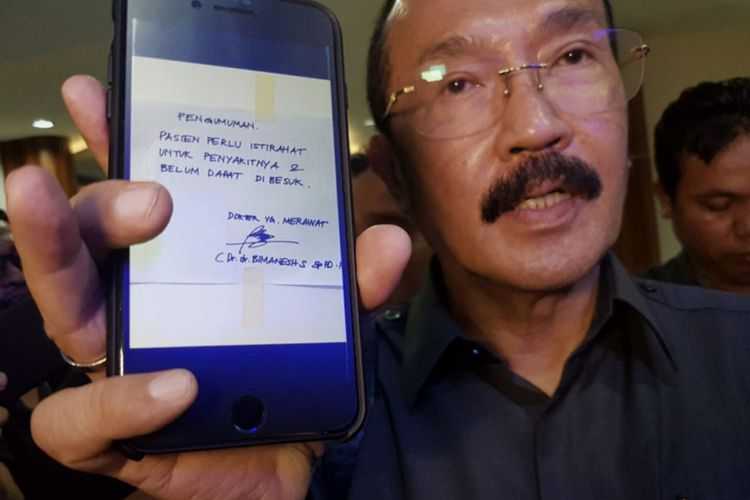 PENGUMUMAN.
PASIEN PERLU ISTIRAHAT
UNTUK PENYAKITNYA &
BELUM DAPAT DI BESUK.
DOKTER YG. MERAWAT
( Dr. dr. BIMANESH S. SpPD.